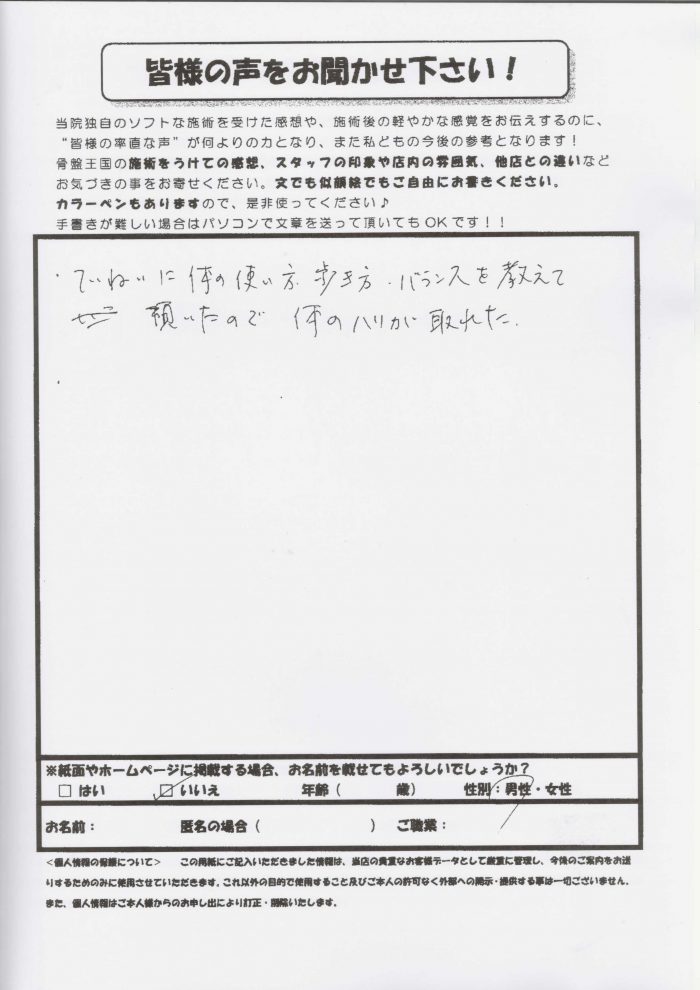 皆様の声をお聞かせ下さい！
当院独自のソフトな施術を受けた感想や、施術後の軽やかな感覚をお伝えするのに、
“皆様の率直な声”が何よりの力となり、また私どもの今後の参考となります！
骨盤王国の施術をうけての感想、スタッフの印象や店内の雰囲気、他店との違いなど
お気づきの事をお寄せください。文でも似顔絵でもご自由にお書きください。
カラーペンもありますので、是非使ってください♪
手書きが難しい場合はパソコンで文章を送って頂いてもOKです！！
・ていねいに体の使い方、歩き方、バランスを教えて
頂いたので 体のハリが取れた.
※紙面やホームページに掲載する場合、お名前を載せてもよろしいでしょうか？
□ はい □ いいえ 年齢（ 歳） 性別：男性・女性
お名前： 匿名の場合（ ） ご職業：
＜個人情報の登録について＞ この用紙にご記入いただきました情報は、当店の貴重なお客様データとして厳重に管理し、今後のご案内をお送
りするためのみに使用させていただきます。これ以外の目的で使用すること及びご本人の許可なく外部への開示・提供する事は一切ございません。
また、個人情報はご本人様からのお申し出により訂正・削除いたします。